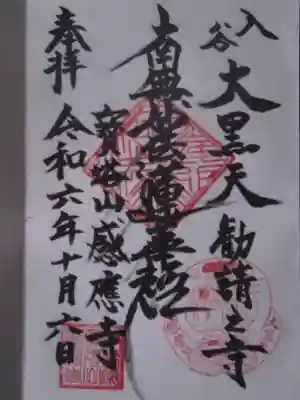 入谷
大黒天 勧請之寺
南無妙法蓮華経
寳塔山 感應寺
奉拝
令和六年十月六日